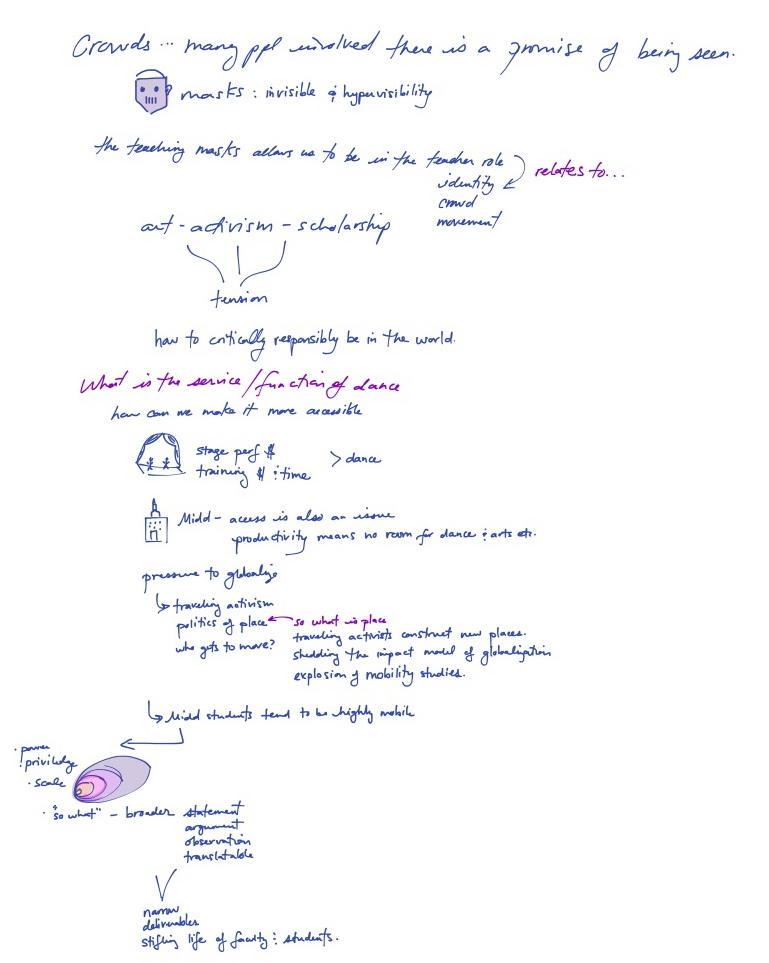 Crowds... many ppl involved there is a promise of being seen.
masks: invisible & hypervisibility
the teaching masks allows us to be in the teacher role
relates to...
identity
crowd
movement
art - activism - scholarship
tension
how to critically responsibly be in the world.
What is the service/function of dance
how can we make it more accessible
stage perf $
training $ & time
> dance
Midd - access is also an issue
productivity means no room for dance & arts etc.
pressure to globalize
traveling activism
politics of place
so what is place
who gets to move?
traveling activists construct new places.
shedding the impact model of globalization
explosion of mobility studies.
Midd students tend to be highly mobile
· power
priviledge
· scale
· "so what" - broader statement
argument
observation
translatable
narrow
deliverables
stifling life of faculty & students.